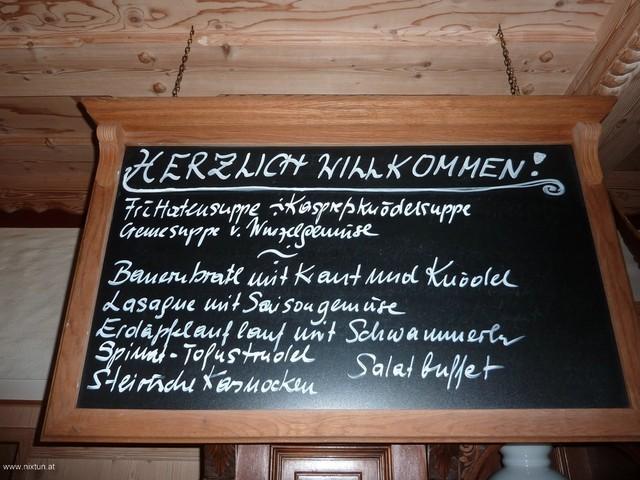 HERZLICH WILLKOMMEN!
Frittatensuppe : Kaspreßknödelsuppe
Cremesuppe v. Wurzelgemüse
~
Bauernbratl mit Kraut und Knödel
Lasagne mit Saisongemüse
Erdäpfelauflauf mit Schwammerln
Spinat-Tofustrudel
Salatbuffet
Steirische Kasnocken
www.nixtun.at